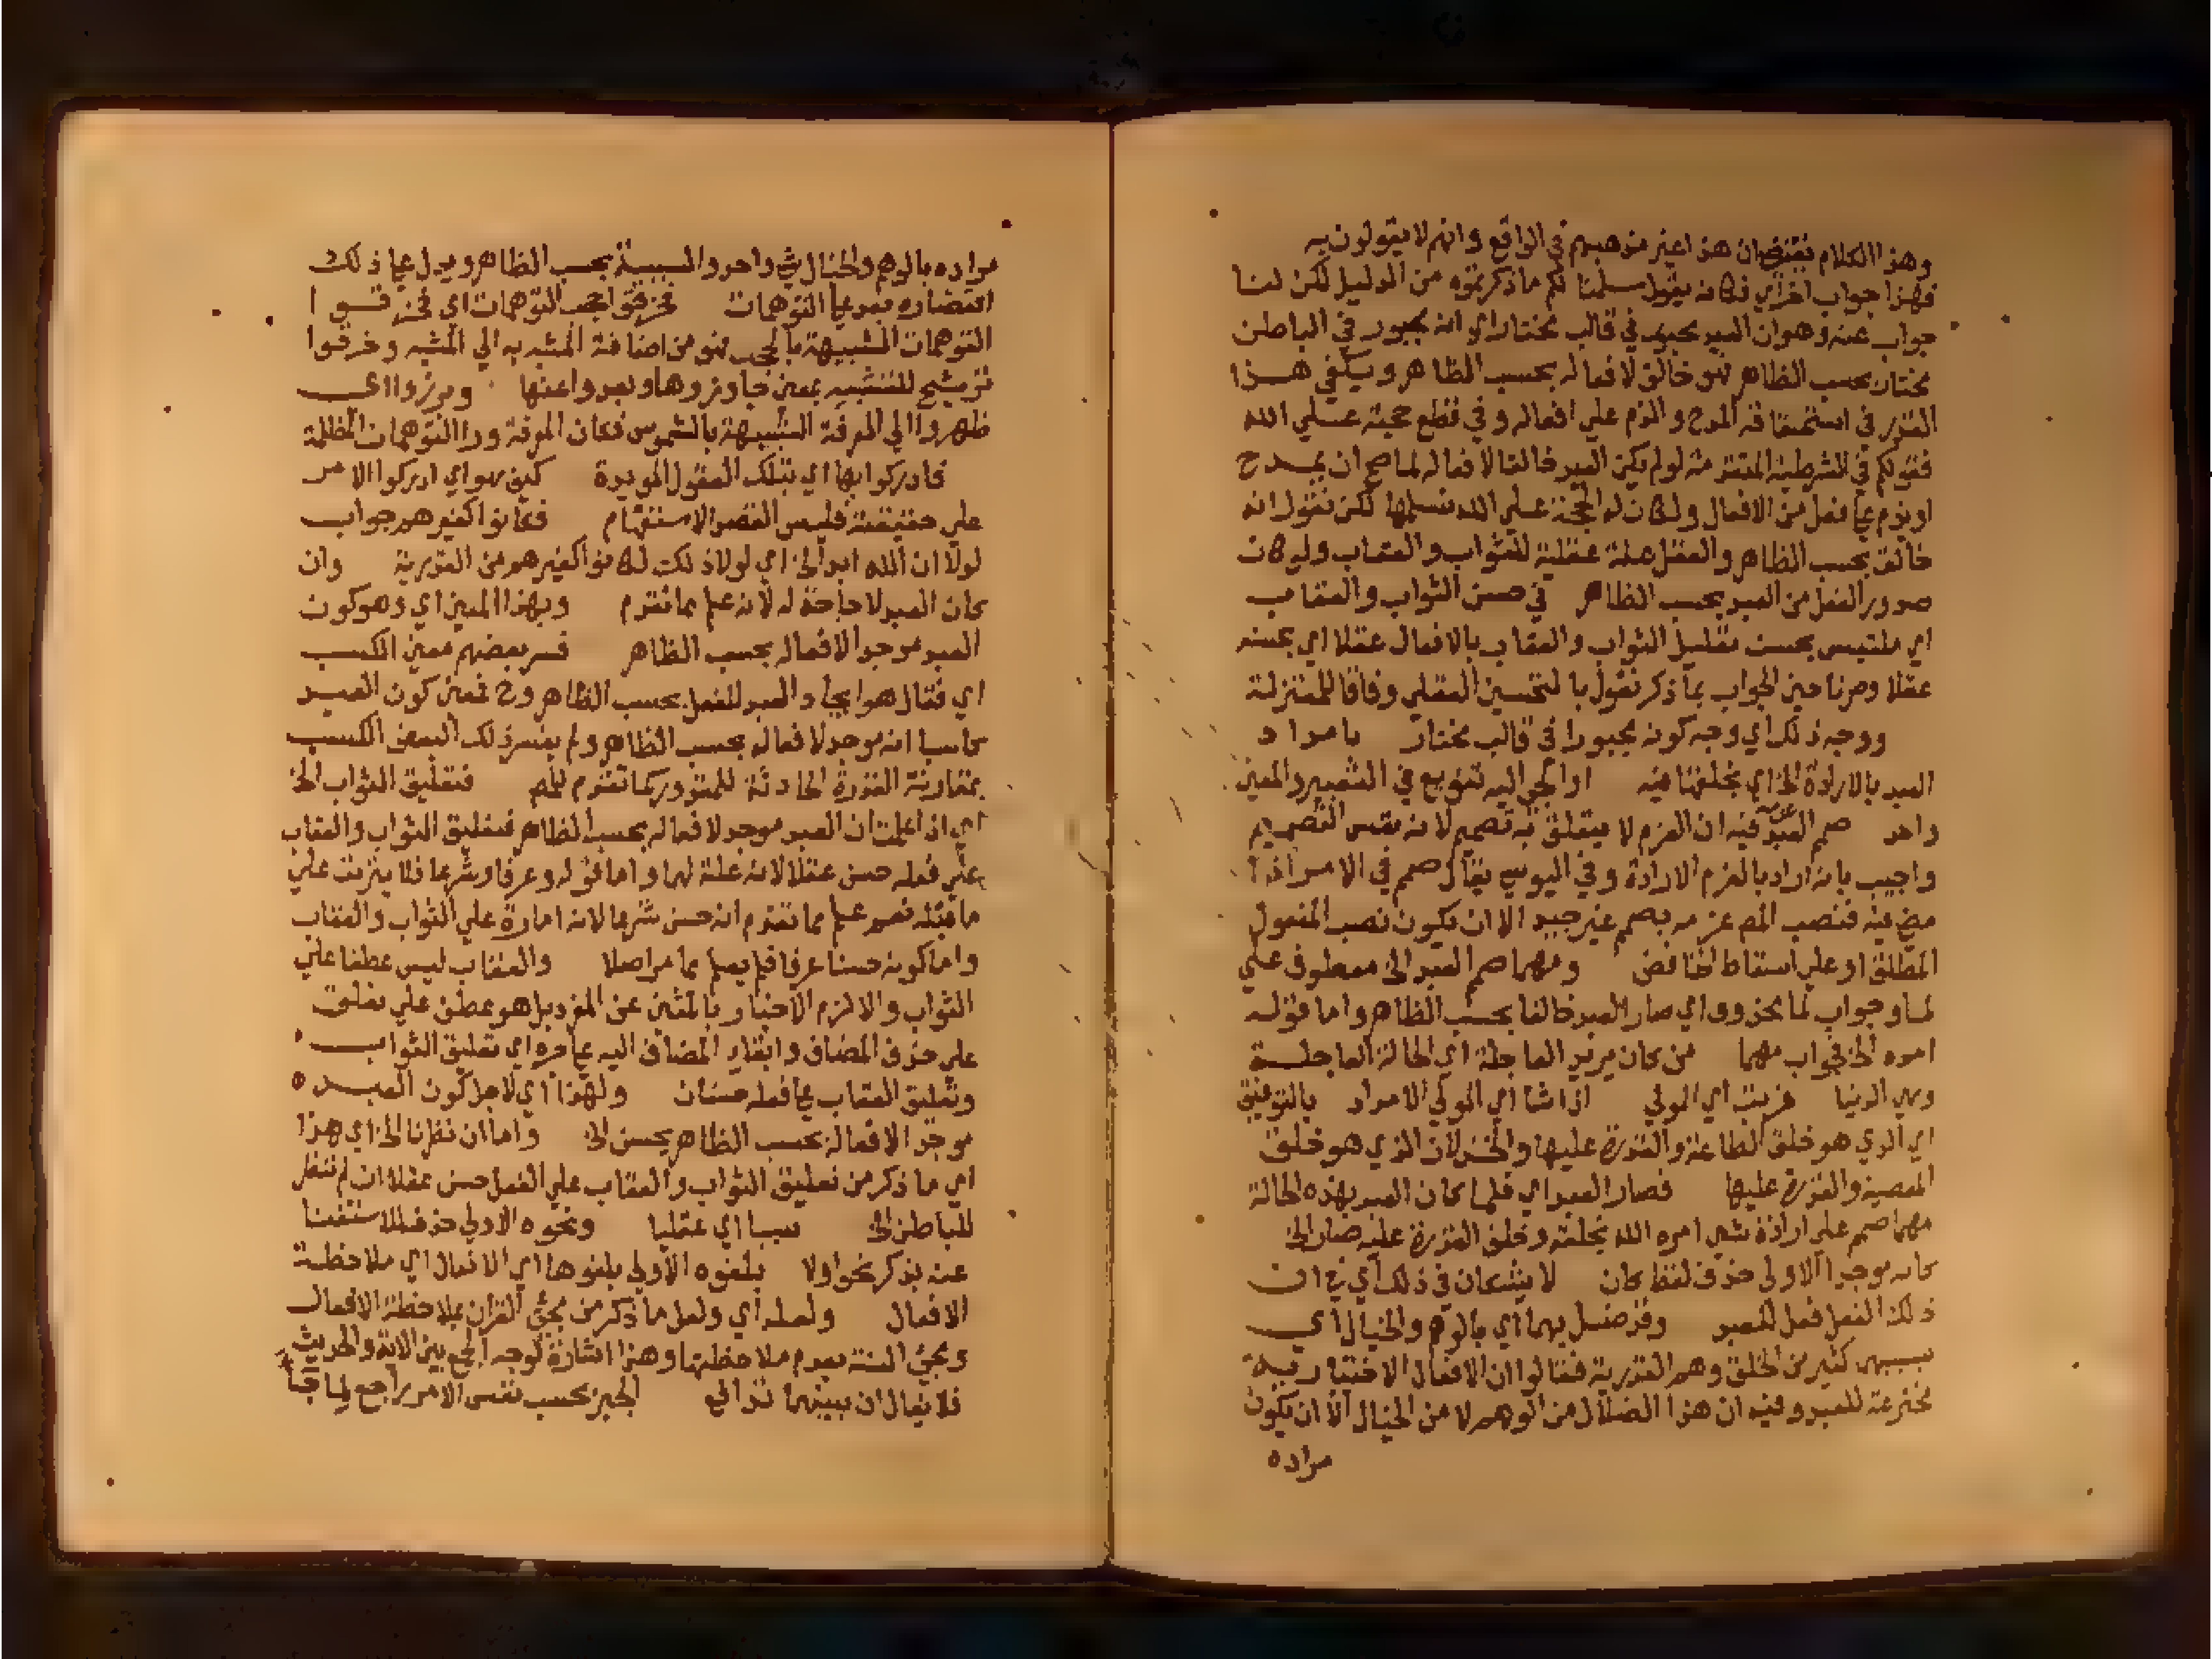 وهذا الكلام يقتضي ان هذا عين مذهبهم في الواقع وانهم لا يقولون به
فهذا جواب اخر اي فكانه يقول سلمنا لكم ما ذكرتموه من الدليل لكن لنا
جواب عنه وهو ان العبد مجبور في قالب مختار اي انه مجبور في الباطن
مختار بحسب الظاهر فهو خالق لافعاله بحسب الظاهر ويكفي هذا
القدر في استحقاقه المدح والذم علي افعاله وفي قطع حجيته علي الله
فقولكم في الشرطية المتقدمة لو لم يكن العبد خالقا لافعاله لما صح ان يمدح
او يذم علي فعل من الافعال ولكان له الحجة علي الله نسلمها لكن نقول انه
خالق بحسب الظاهر والعقل علة عقلية للثواب والعقاب ولو كان
صدور الفعل من العبد بحسب الظاهر في حسن الثواب والعقاب
اي ملتبس بحسن تعليل الثواب والعقاب بالافعال عقلا اي بحسنه
عقلا وصرنا حين الجواب بما ذكر نقول بالتحسين العقلي وفاقا للمعتزلة
ووجه ذلك اي وجه كونه مجبورا في قالب مختار بامراد
العبد بالارادة الخ اي بخلقها فيه او الجي اليه تنويع في التعبير والمعني
واحد صمم العبد عزمه فيه ان العزم لا يتعلق به تصميم لانه نفس التصميم
واجيب بانه اراد بالعزم الارادة وفي اليوسي يقال صمم في الامر اذا
مضي فيه فنصب المص عزمه بصمم غير جيد الا ان يكون نصب المفعول
المطلق او علي اسقاط الخافض ومهما صمم العبد الخ معطوف علي
لما وجواب لما محذوف اي صار العبد خالقا بحسب الظاهر واما قوله
امده الخ فجواب مهما من كان يريد العاجلة اي الحالة العاجلة
وهي الدنيا فريت اي المولي اذا شا اي المولي الامداد بالتوفيق
اي الذي هو خلق الطاعة والقدرة عليها والخذلان الذي هو خلق
المعصية والقدرة عليها فصار العبد اي فلما كان العبد بهذه الحالة
مهما صمم علي ارادة شي امده الله بخلقه وخلق القدرة عليه صار الخ
كانه موجد الاولي حذف لفظ كان لا يشكان في ذلك اي في ان
ذلك الفعل فعل للعبد وقد ضل بهما اي بالوهم والخيال اي
بسببهما كثير من الخلق وهم القدرية فقالوا ان الافعال الاختيارية
مخترعة للعبد وفيه ان هذا الضلال من الوهم لا من الخيال الا ان يكون
مراده
مراده بالوهم والخيال شي واحد والسببية بحسب الظاهر ويدل علي ذلك
اقتصاره بعد علي التوهمات فخرقوا حجب التوهمات اي فخرقوا
التوهمات الشبيهة بالحجب فهو من اضافة المشبه به الي المشبه وخرقوا
ترشيح للتشبيه بمعني جاوزوها وبعدوا عنها وبرزوا اي
ظهروا الي المعرفة الشبيهة بالشموس فكان المعرفة ورا التوهمات المظلمة
فادركوا بها اي بتلك العقول المويدة كيف هو اي ادركوا الامر
علي حقيقته فليس القصد الاستفهام فكانوا كغيرهم جواب
لولا ان الله ايد الخ اي لولا ذلك لكانوا كغيرهم من القدرية وان
كان العبد لا حاجة له لانه علم مما تقدم وبهذا المعني اي وهو كون
العبد موجد الافعاله بحسب الظاهر فسر بعضهم معني الكسب
اي فقال هو ايجاد العبد للفعل بحسب الظاهر وح فمعني كون العبد
كاسبا انه موجد لافعاله بحسب الظاهر ولم يفسر ذلك البعض الكسب
بمقارنة القدرة الحادثة للمقدور كما تقدم للمص فتعليق الثواب الخ
اي اذا علمت ان العبد موجد لافعاله بحسب الظاهر فتعليق الثواب والعقاب
علي فعله حسن عقلا لانه علة لهما واما قوله وعرفا وشرعا فلا يترتب علي
ما قبله نعم علم مما تقدم انه حسن شرعا لانه امارة علي الثواب والعقاب
واما كونه حسنا عرفا فلم يعلم مما مر اصلا والعقاب ليس عطفا علي
الثواب والا لزم الاخبار بالمثني عن المفرد بل هو عطف علي تعلق
علي حذف المضاف وابقاء المضاف اليه علي جره اي تعليق الثواب
وتعليق العقاب علي فعله حسنان ولهذا اي لاجل كون العبد
موجد الافعاله بحسب الظاهر يحسن الخ واما ان نظرنا الخ اي هذا
اي ما ذكر من تعليق الثواب والعقاب علي الفعل حسن عقلا ان لم ننظر
للباطن الخ سببا اي عقليا ونحوه الاولي حذفه للاستغنا
عنه بذكر نحو اولا بلغوه الاولي بلغوها اي الافعال اي ملاحظة
الافعال ولعله اي ولعل ما ذكر من مجي القران بملاحظة الافعال
ومجي السنة بعدم ملاحظتها وهذا اشارة لوجه الجمع بين الاية والحديث
فلا يقال ان بينهما تدافع الجبر بحسب نفس الامر راجع لما جا